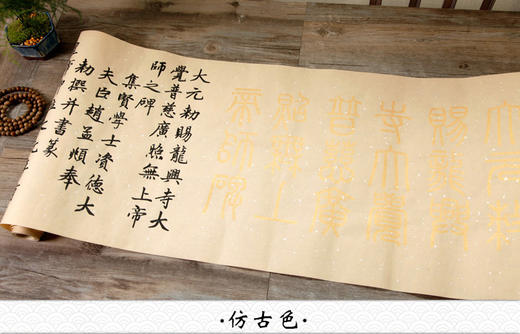 大元敕
賜龍興
寺大覺
普慈廣
照無上
帝師碑
大元勅賜龍興寺大
覺普慈廣照無上帝
師之碑
集賢學士資德大
夫臣趙孟頫奉
勅撰并書篆
·仿古色·